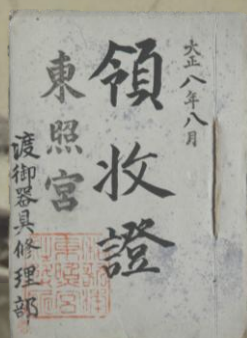 大正八年八月
領收證
東照宮
渡御器具修理部